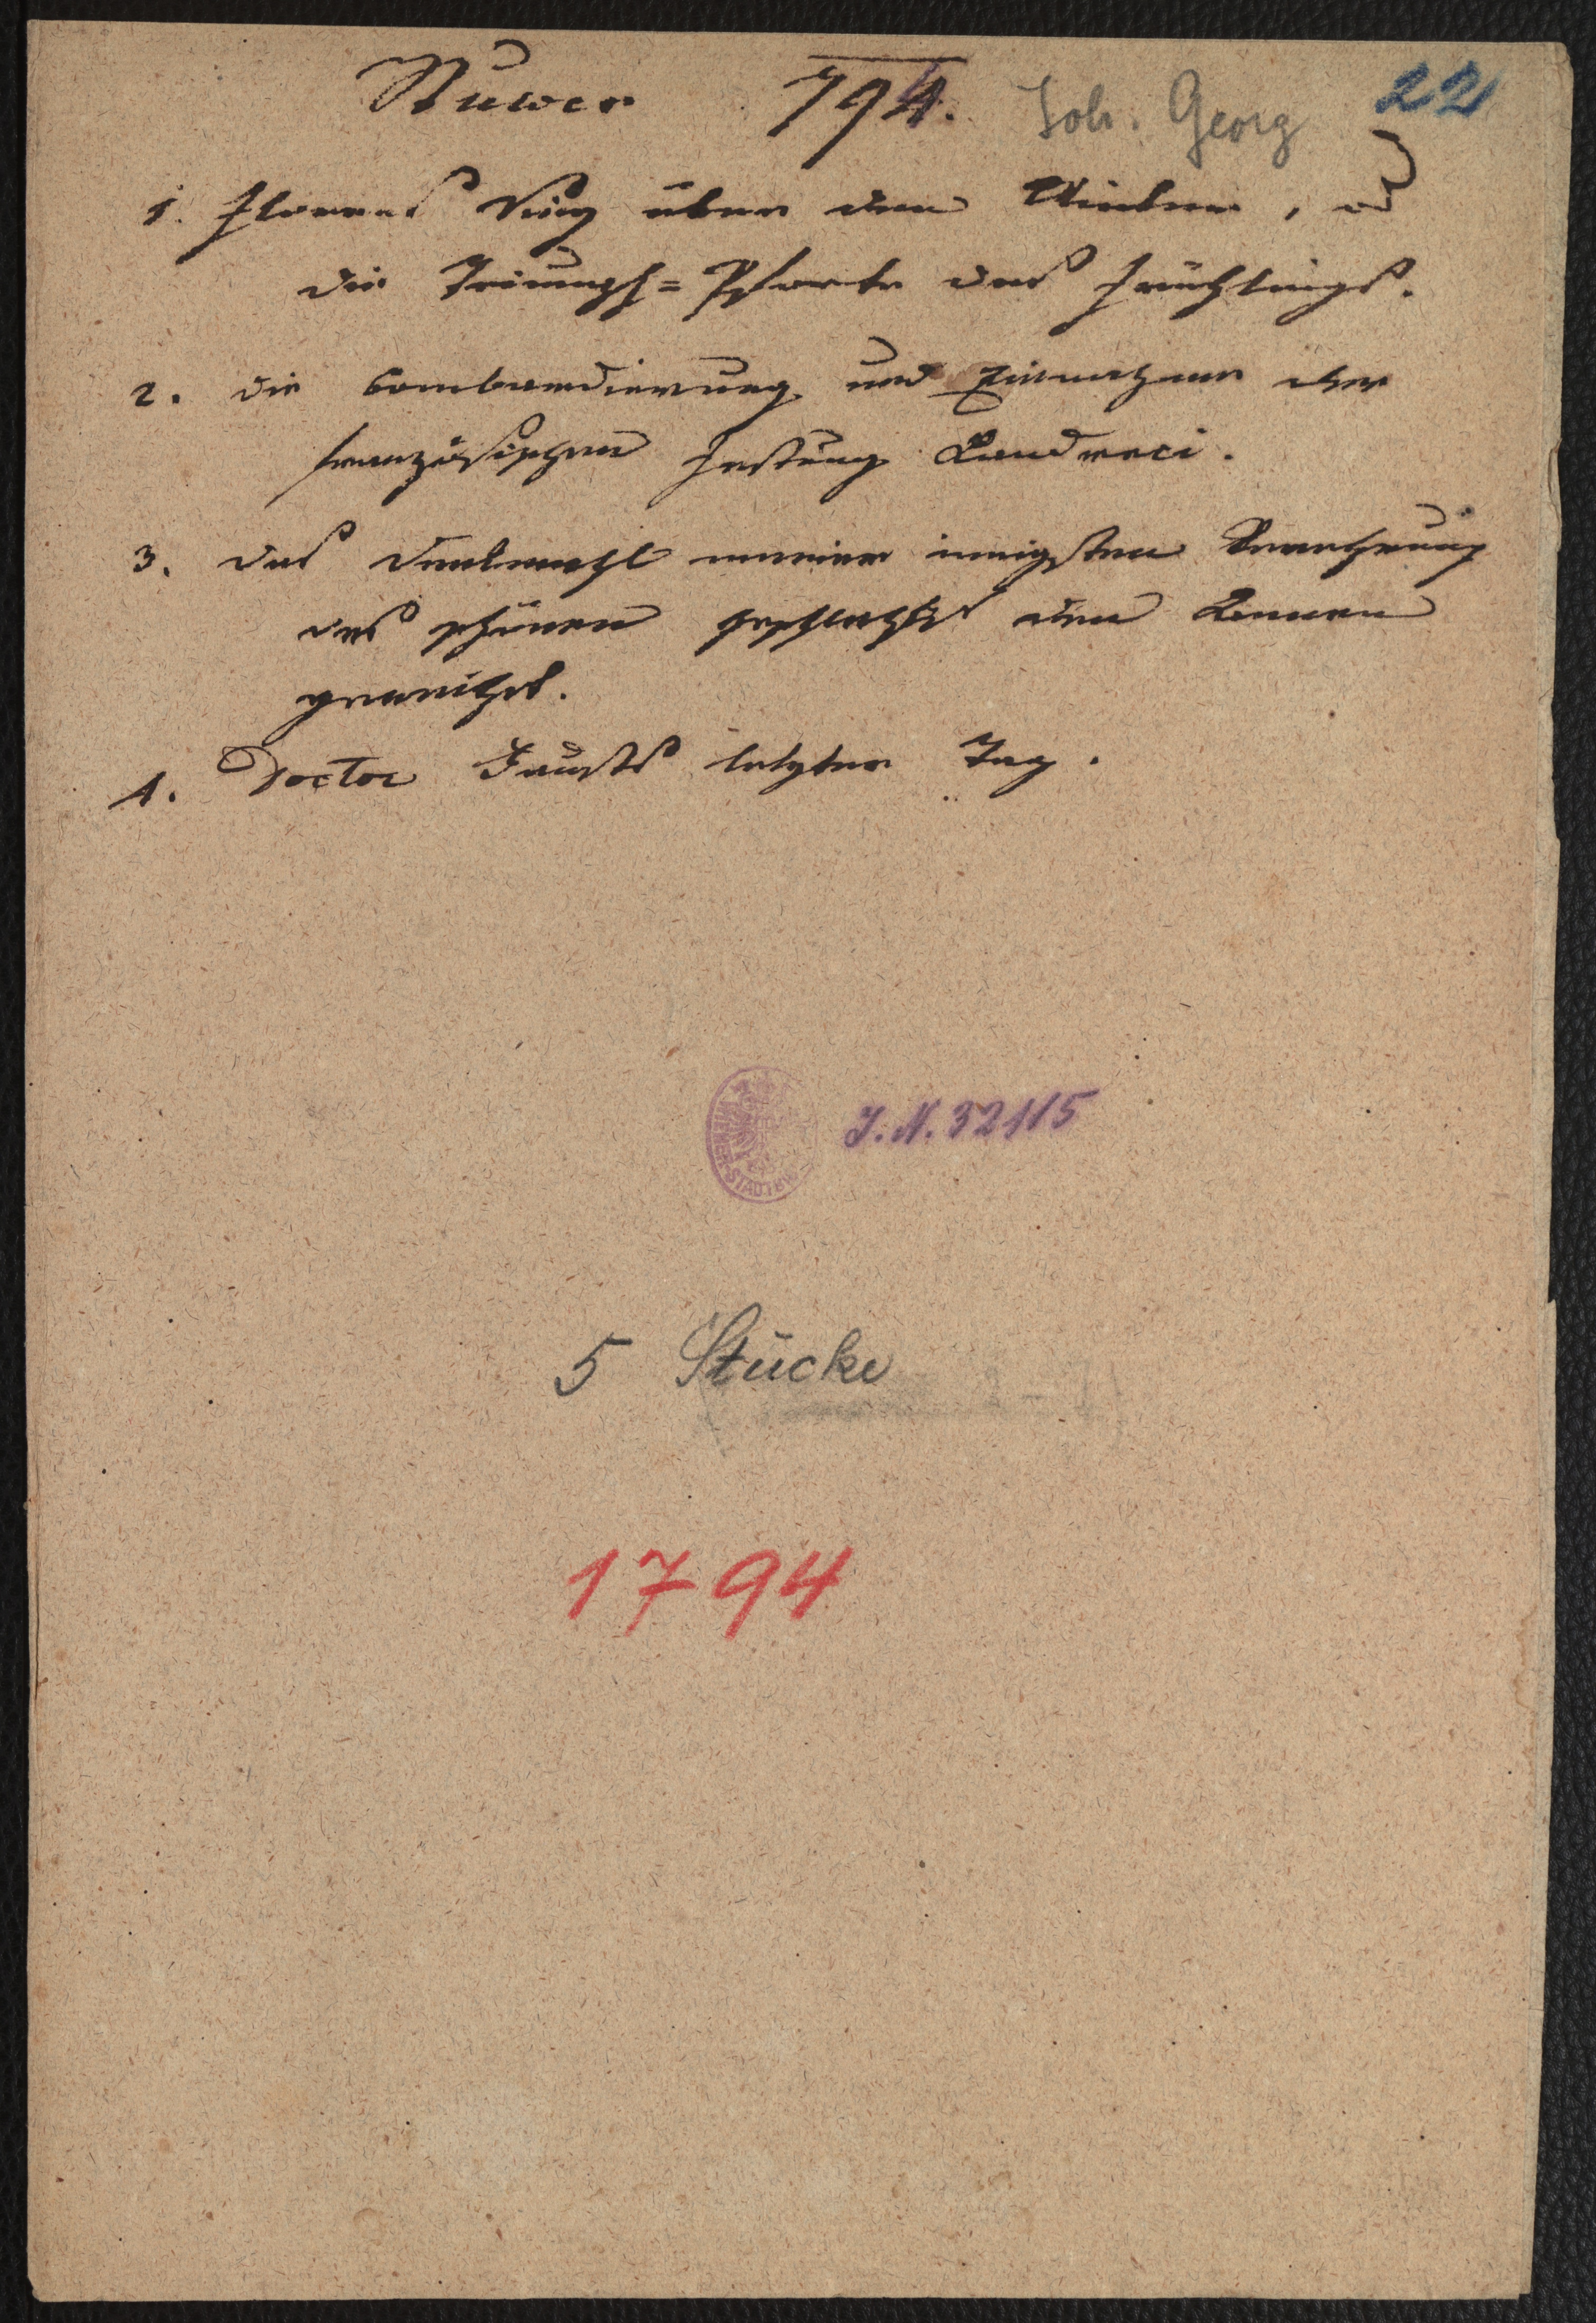 Stuwer 794. Joh. Georg 22
1. Florens Sieg über den Winter, od
die Triumpf=Pforte des Frühlings.
2. die Bombardierung und Einnahme der
französischen Festung Landreci.
3. das Denkmahl meiner innigsten Verehrung
des schönen Geschlechts den Damen
geweihet.
4. Doctor Fausts letzter Tag.
J.N. 32115
5 Stücke
1794